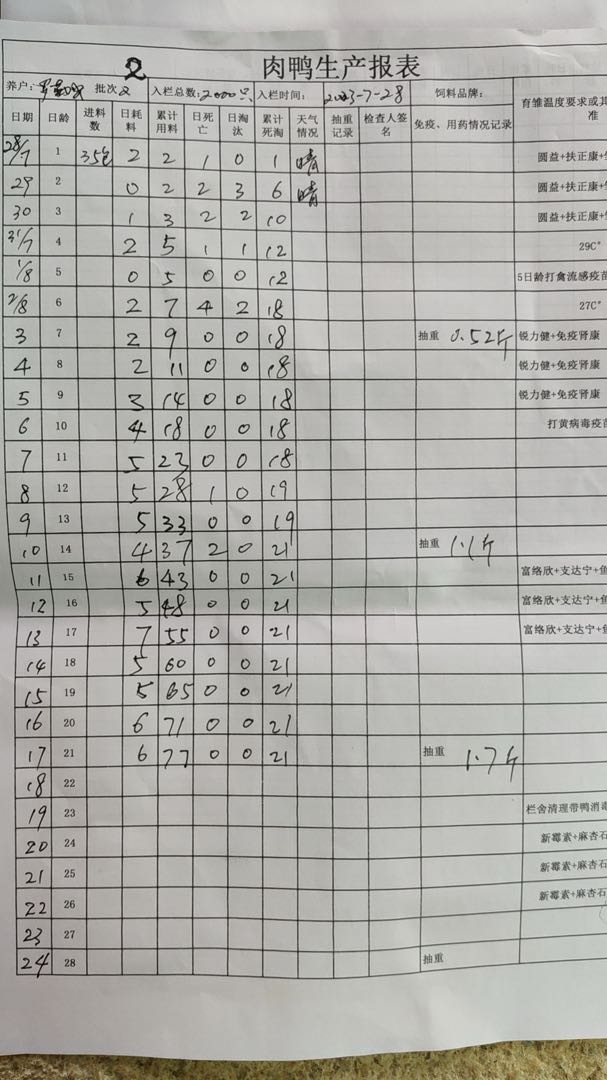 2
肉鸭生产报表
养户: 批次2 入栏总数:2000只 入栏时间: 2023-7-28 饲料品牌: 育雏温度要求或其
准
日期 日龄 进料数 日耗料 累计用料 日死亡 日淘汰 累计死淘 天气情况 抽重记录 检查人签名 免疫、用药情况记录
28/7 1 35包 2 2 1 0 1 晴 圆益+扶正康+
29 2 0 2 2 3 6 晴 圆益+扶正康+
30 3 1 3 2 2 10 圆益+扶正康+
31/7 4 2 5 1 1 12 29C°
1/8 5 0 5 0 0 12 5日龄打禽流感疫苗
2/8 6 2 7 4 2 18 27C°
3 7 2 9 0 0 18 抽重 0.52斤 锐力健+免疫肾康
4 8 2 11 0 0 18 锐力健+免疫肾康
5 9 3 14 0 0 18 锐力健+免疫肾康
6 10 4 18 0 0 18 打黄病毒疫苗
7 11 5 23 0 0 18
8 12 5 28 1 0 19
9 13 5 33 0 0 19
10 14 4 37 2 0 21 抽重 1.1斤
11 15 6 43 0 0 21 富络欣+支达宁+鱼
12 16 5 48 0 0 21 富络欣+支达宁+鱼
13 17 7 55 0 0 21 富络欣+支达宁+鱼
14 18 5 60 0 0 21
15 19 5 65 0 0 21
16 20 6 71 0 0 21
17 21 6 77 0 0 21 抽重 1.7斤
18 22
19 23 栏舍清理带鸭消毒
20 24 新霉素+麻杏石
21 25 新霉素+麻杏石
22 26 新霉素+麻杏石
23 27
24 28 抽重